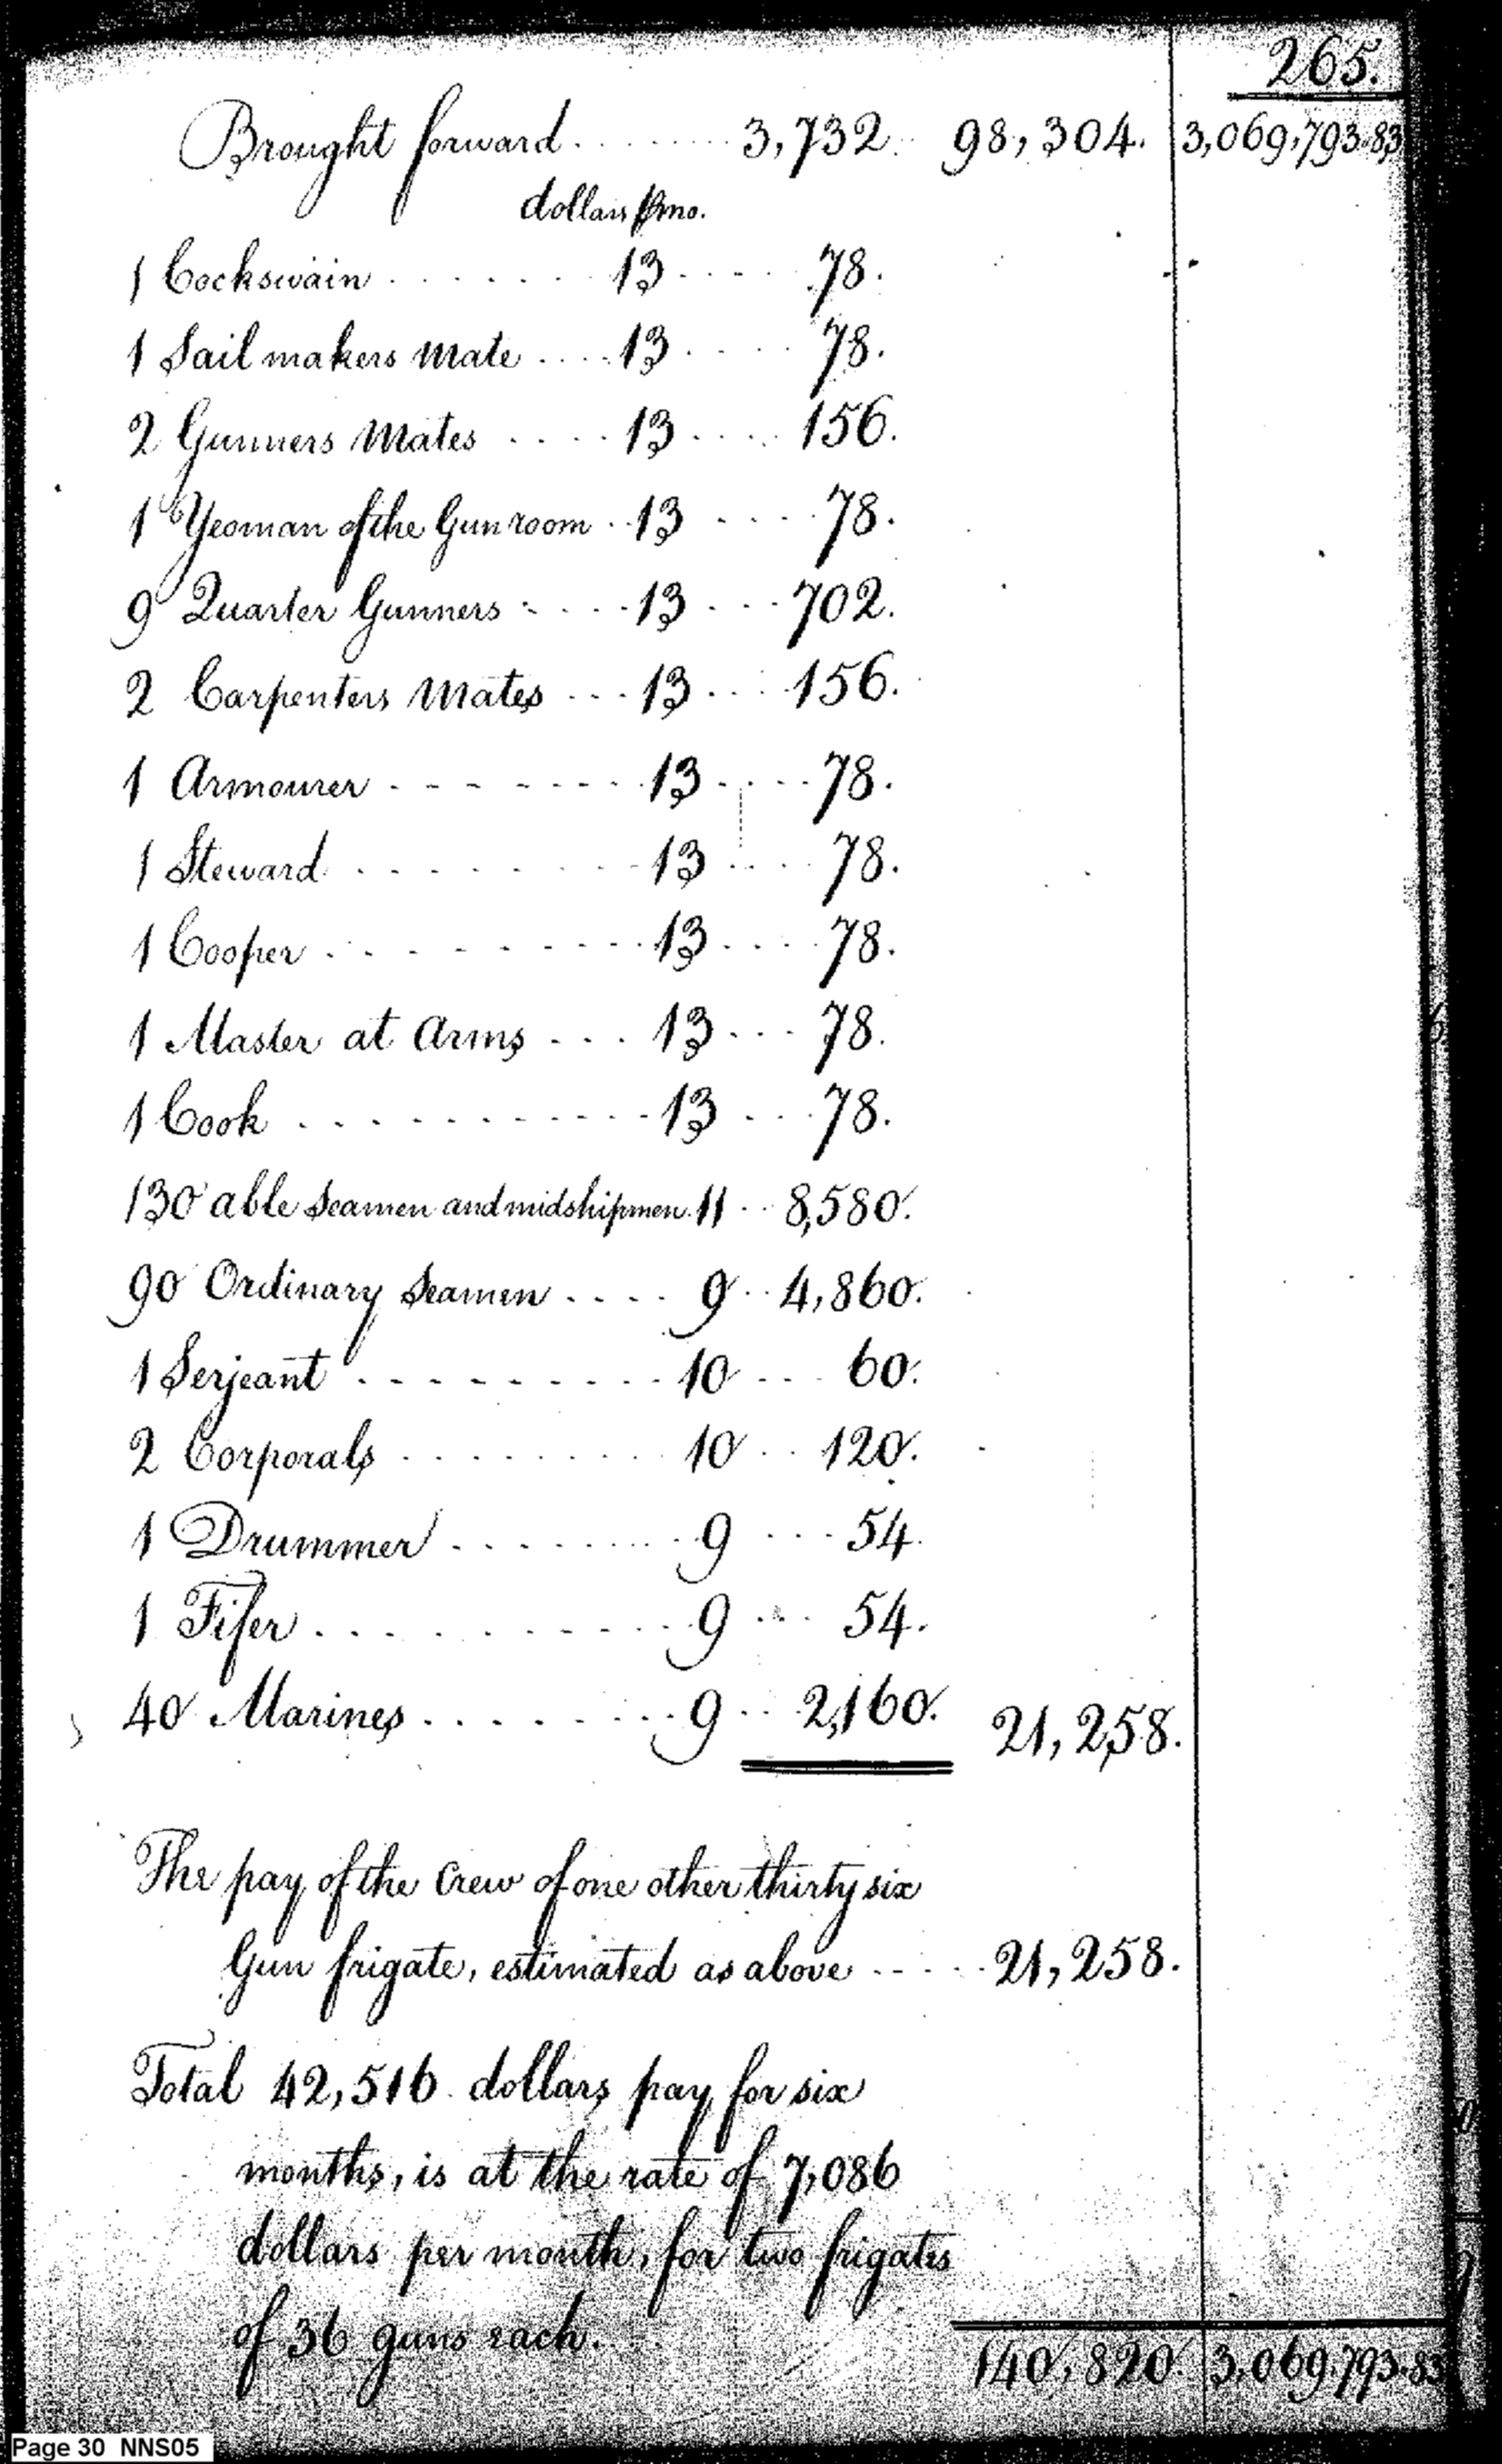 265.
Brought forward. . . . . . . . 3,732. 98,304. 3,069,793.83
dollars ⅌ mo.
1 Cockswain . . . . . . . 13 . . . . . 78.
1 Sail makers Mate . . . . 13 . . . . . 78.
2 Gunners Mates . . . . 13 . . . . 156.
1 Yeoman of the Gun room . . 13 . . . . 78.
9 Quarter Gunners . . . . 13 . . . 702.
2 Carpenters Mates . . . 13 . . . . 156.
1 Armourer . . . . . . . . 13 . . . . 78.
1 Steward . . . . . . . . . 13 . . . . 78.
1 Cooper . . . . . . . . . . 13 . . . . 78.
1 Master at Arms . . . 13 . . . 78.
1 Cook . . . . . . . . . . . 13 . . . 78.
130 able Seamen and midshipmen . 11 . . 8,580.
90 Ordinary Seamen . . . . 9 . . 4,860.
1 Serjeant . . . . . . . . . 10 . . . 60.
2 Corporals . . . . . . . . 10 . . 120.
1 Drummer . . . . . . . . 9 . . . 54.
1 Fifer . . . . . . . . . . . 9 . . . 54.
40 Marines . . . . . . . . 9 . . 2,160. 21,258.
The pay of the Crew of one other thirty six
Gun frigate, estimated as above . . . . . 21,258.
Total 42,516 dollars pay for six
months, is at the rate of 7,086
dollars per month, for two frigates
of 36 guns each.
140,820. 3,069,793.83
Page 30 NNS05